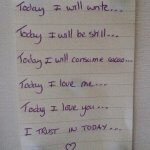 Today I will write...
Today I will be still...
Today I will consume cacao...
Today I love me...
Today I love you...
I TRUST IN TODAY...